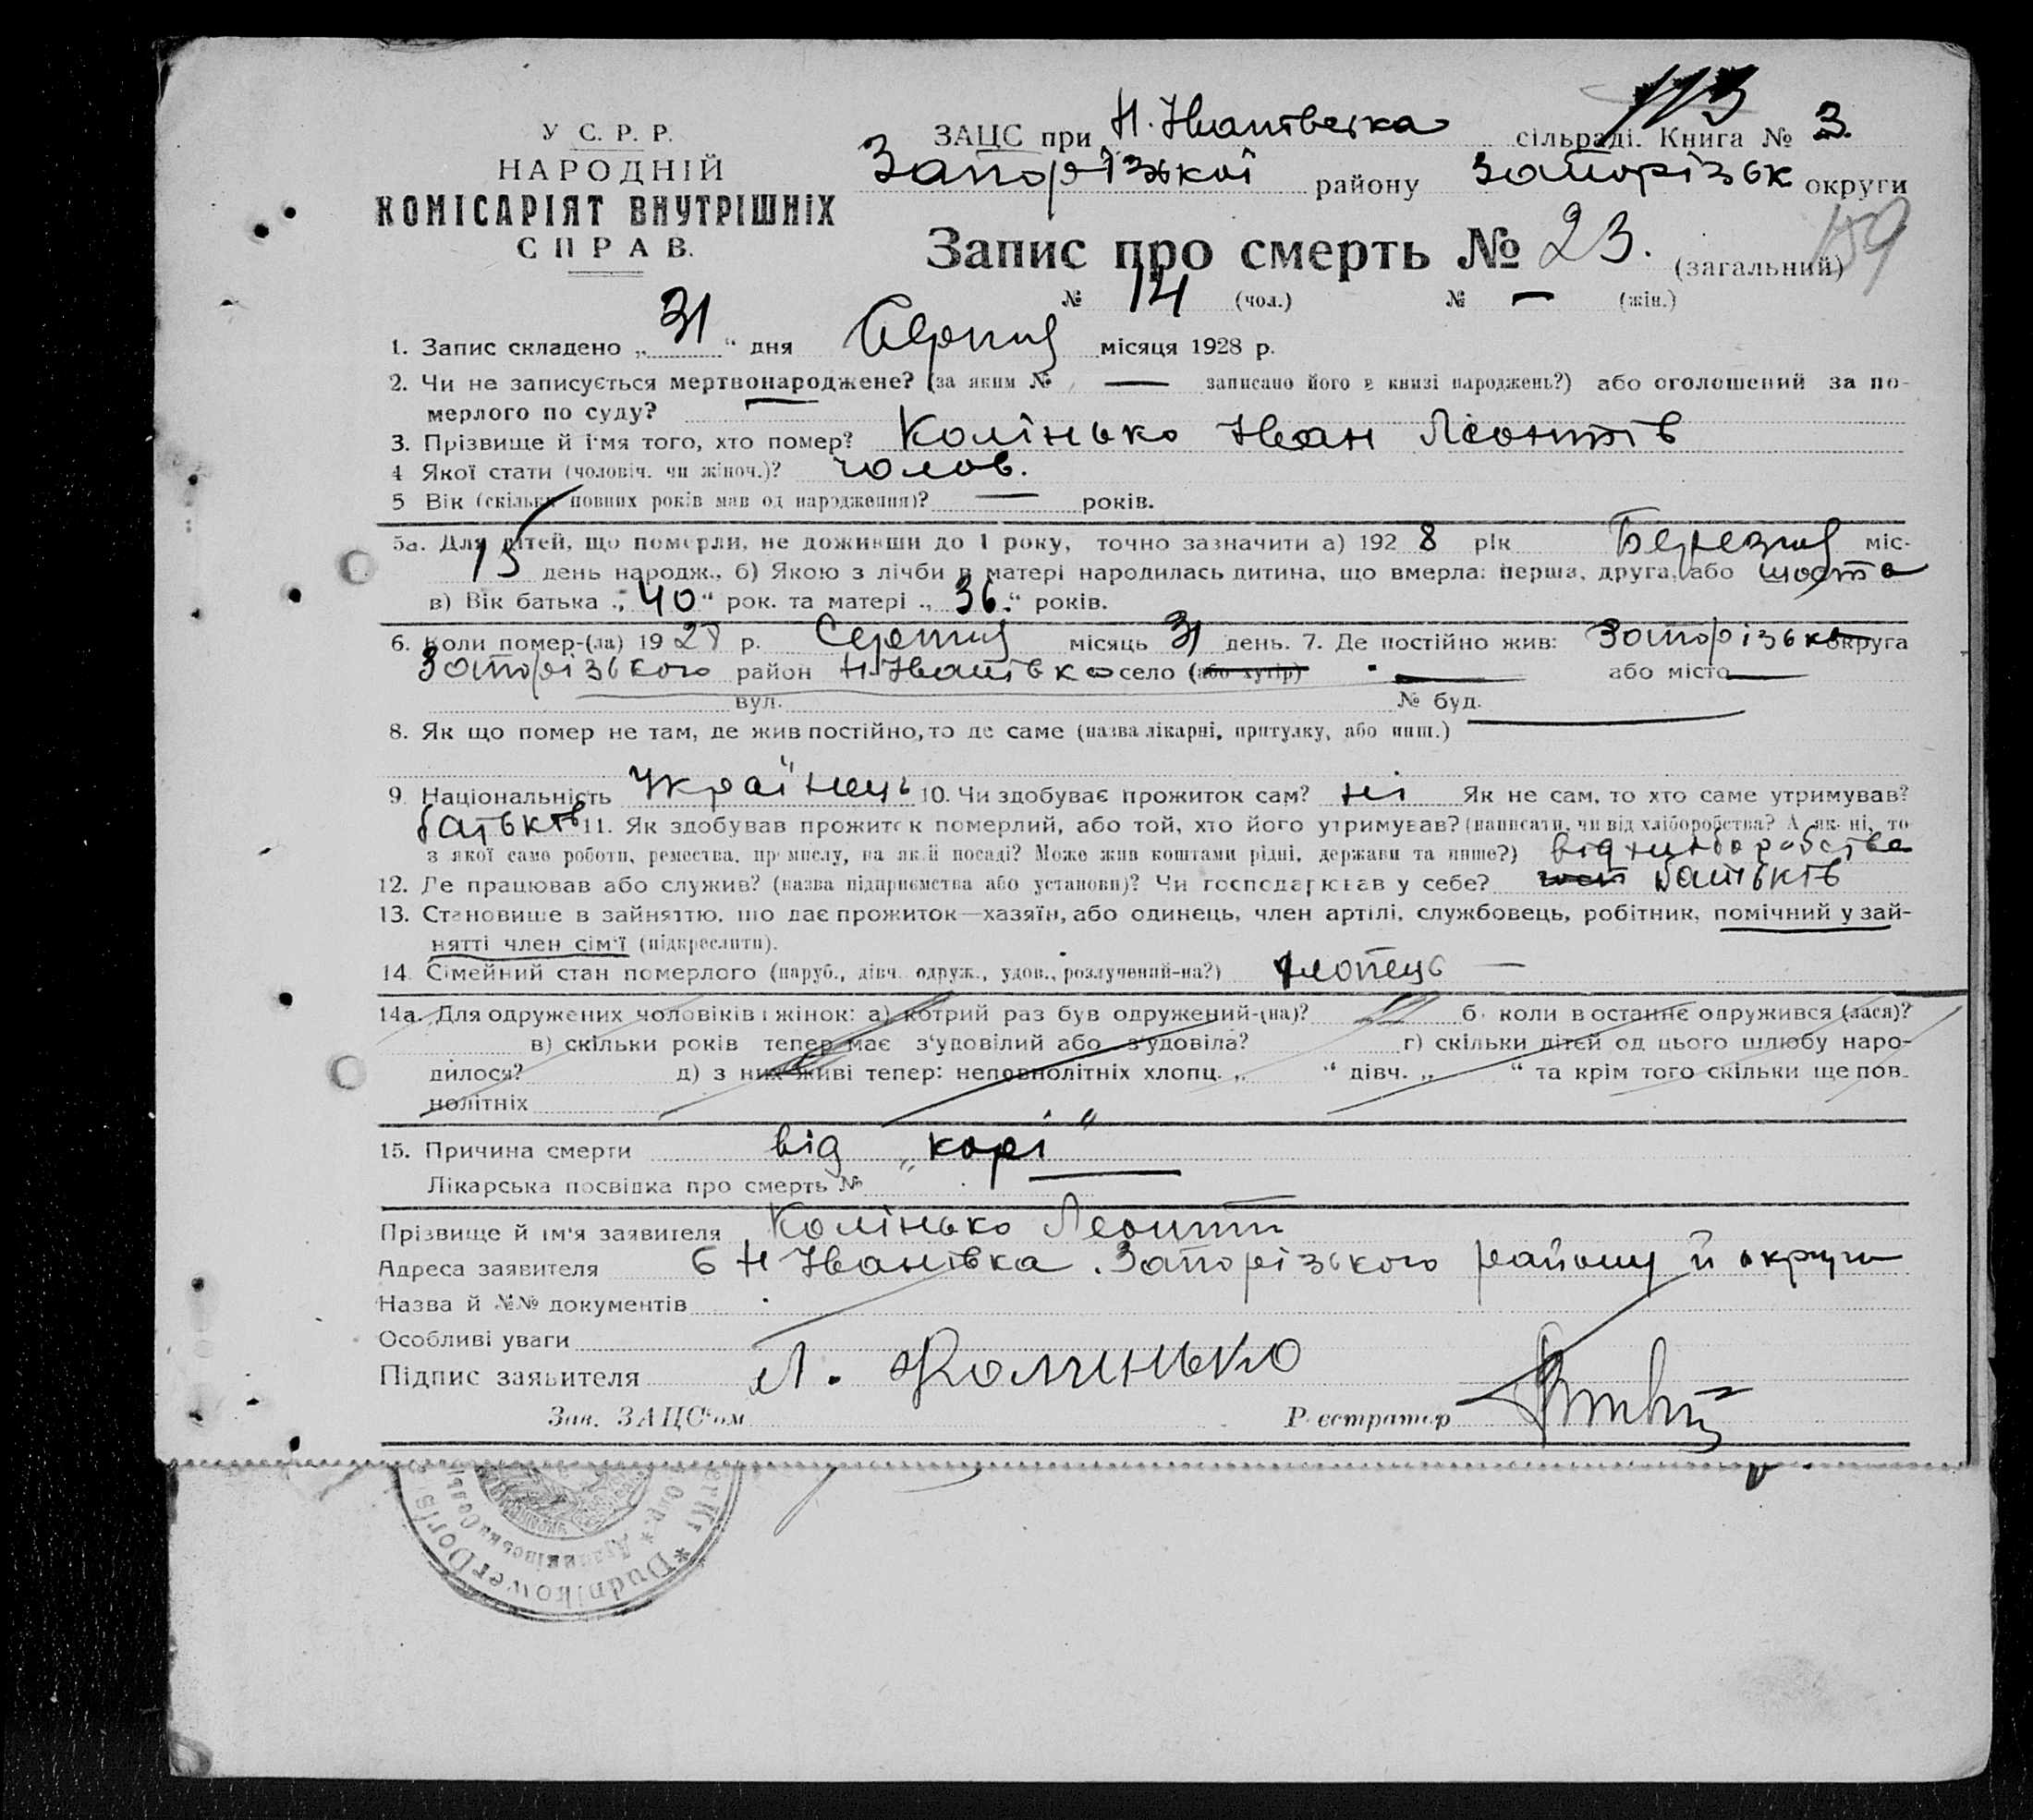 113
У С. Р. Р.
НАРОДНІЙ
КОМІСАРІЯТ ВНУТРІШНІХ
СПРАВ.
ЗАЦС при Н. Ивановка сільраді. Книга № 3
Запорізької району Запорізьк округи
Запис про смерть № 23. (загальний) 159
№ 14 (чол.) № — (жін.)
1. Запис складено „ 31 “ дня Серпня місяця 1928 р.
2. Чи не записується мертвонароджене? (за яким № — записано його в книзі народжень?) або оголошений за по-
мерлого по суду?
3. Прізвище й ім'я того, хто помер? Колінько Иван Леонтів
4 Якої стати (чоловіч. чи жіноч.)? чолов.
5 Вік (скільки повних років мав од народження)? — років.
5а. Для дітей, що померли, не доживши до 1 року, точно зазначити а) 192 8 рік Березня міс-
15 день народж., б) Якою з лічби в матері народилась дитина, що вмерла: перша, друга, або шоста
в) Вік батька „ 40 “ рок. та матері „ 36. “ років.
6. Коли помер-(ла) 19 28 р. Серпня місяць 31 день. 7. Де постійно жив: Запорізька округа
Запорізького район Н.Иванівка село (або хутір) — або місто —
вул. № буд.
8. Як що помер не там, де жив постійно, то де саме (назва лікарні, притулку, або инш.)
9. Національність Українець 10. Чи здобуває прожиток сам? ні Як не сам, то хто саме утримував?
батьків 11. Як здобував прожиток померлий, або той, хто його утримував? (написати, чи від хліборобства? А як ні, то
з якої саме роботи, ремества, промислу, на якій посаді? Може жив коштами рідні, держави та инше?) від хліборобства
12. Де працював або служив? (назва підприємства або установи)? Чи господарював у себе? батьків
13. Становище в зайняттю, що дає прожиток—хазяїн, або одинець, член артілі, службовець, робітник, помічний у зай-
нятті член сім'ї (підкреслити).
14. Сімейний стан померлого (паруб., дівч. одруж., удов., розлучений-на?) хлопець —
14а. Для одружених чоловіків і жінок: а) котрий раз був одружений-(на)? б. коли востаннє одружився (лася)?
в) скільки років тепер має з'удовілий або з'удовіла? г) скільки дітей од цього шлюбу наро-
дилося? д) з них живі тепер: неповнолітніх хлопц. „ “ дівч. „ “ та крім того скільки ще пов-
нолітніх
15. Причина смерти від „корі“
Лікарська посвідка про смерть №
Прізвище й ім'я заявителя Колінько Леонтий
Адреса заявителя с Н Иванівка. Запорізького району й округи
Назва й №№ документів
Особливі уваги
Підпис заявителя Л. Колинько
Зав. ЗАЦС'ом Реєстратор
Dudnikower Dorfs